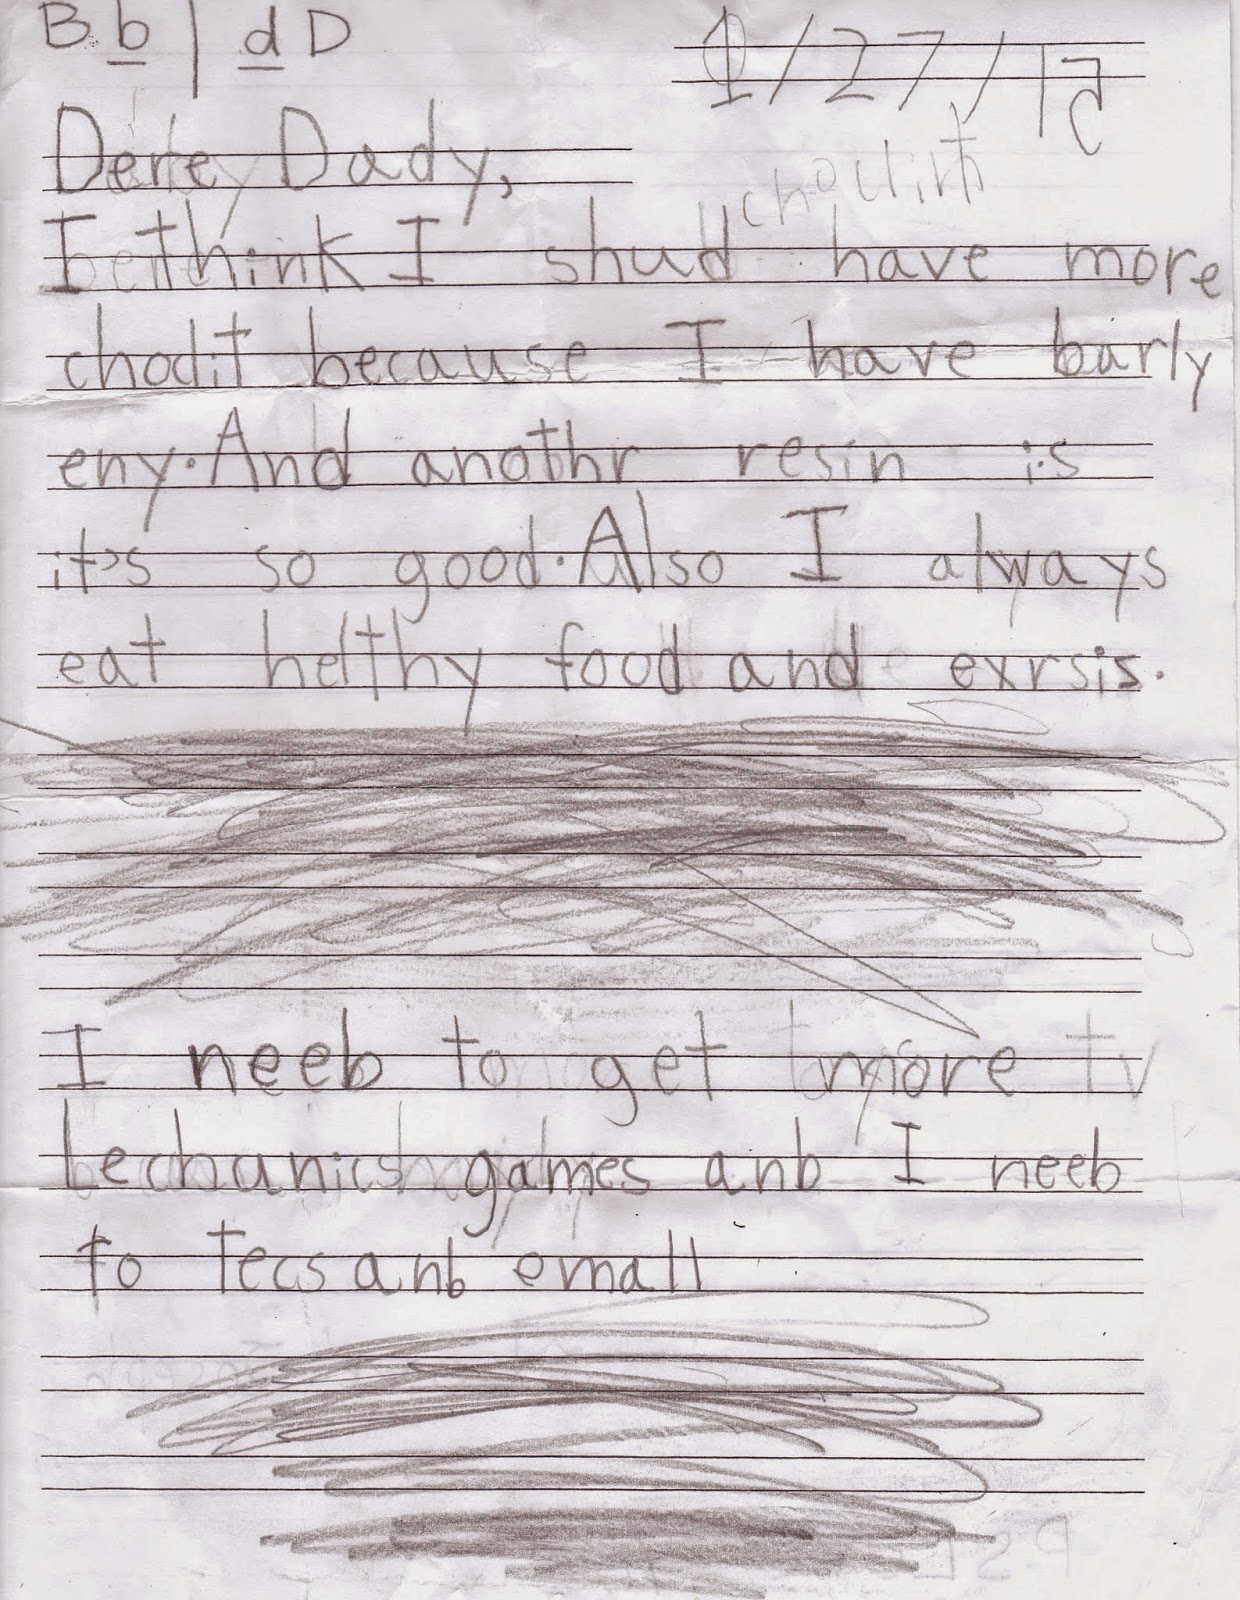 B b | d D
1/27/15
Dere Dady,
I think I shud have more
chodit because I have barly
eny. And anothr resin is
it's so good. Also I always
eat helthy food and exrsis.
I neeb to get more tv
games anb I neeb
to tecs anb emall